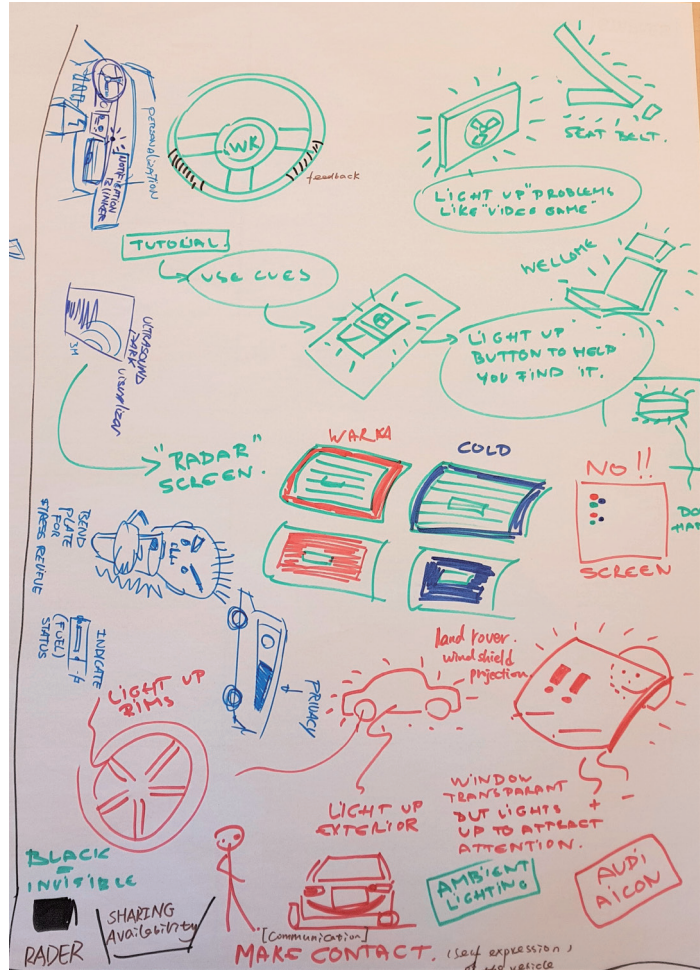 PERSONALIZATION
NOTIFICATION
BLINKER
WK
feedback
SEAT BELT.
LIGHT UP "PROBLEMS
LIKE "VIDEO GAME"
TUTORIAL.
USE CUES
WELLOME
LIGHT UP
BUTTON TO HELP
YOU FIND IT.
ULTRASOUND
PARK
VISUALIZAR
3M
"RADAR"
SCREEN.
WARKA
COLD
NO!!
SCREEN
DO
HA
BEND
PLATE
FOR
STRESS
INDICATE
(FUEL)
STATUS
PRIVACY
LIGHT UP
RIMS
land rover.
windshield
projection
!!
LIGHT UP
EXTERIOR
WINDOW
TRANSPARANT
BUT LIGHTS
UP TO ATTRACT
ATTENTION.
+
-
BLACK
=
INVISIBLE
RADER
SHARING
Availability
AMBIENT
LIGHTING
AUDI
AICON
[Communication]
MAKE CONTACT.
(self expression)
of the vehicle